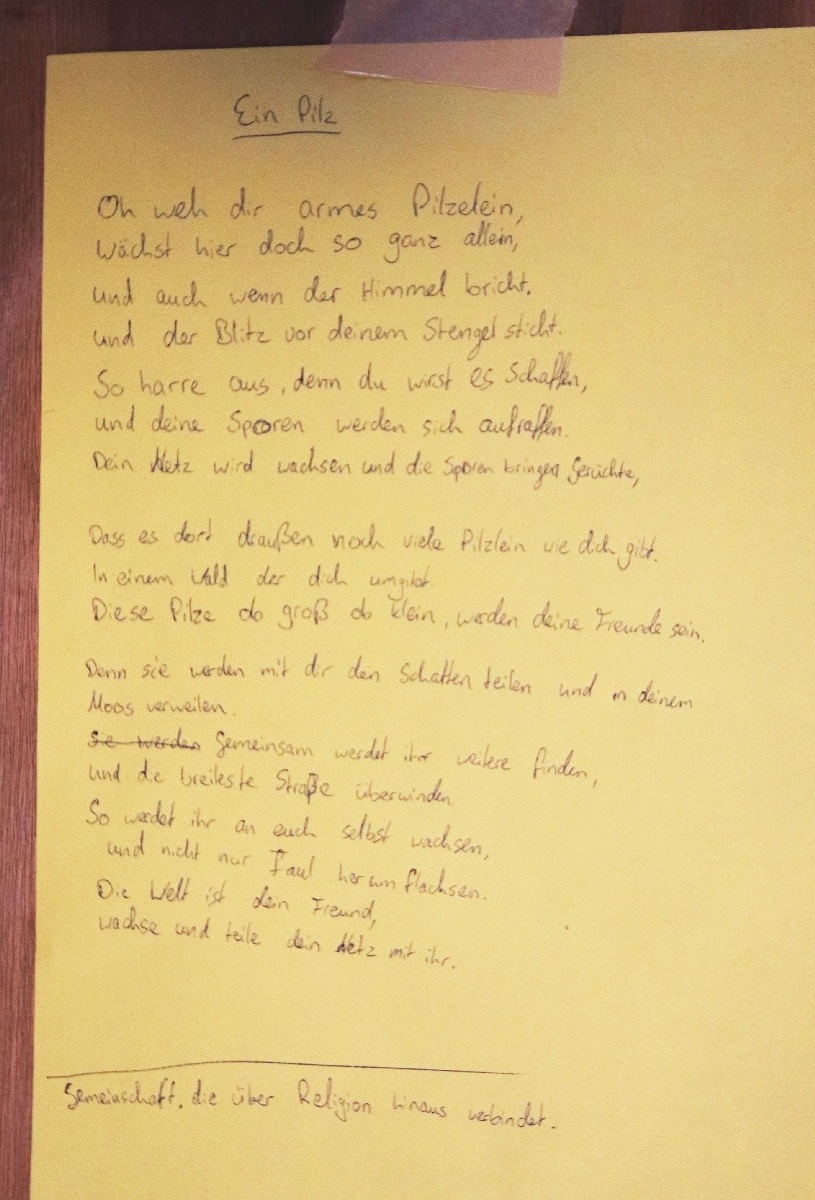 Ein Pilz
Oh weh dir armes Pilzelein,
wächst hier doch so ganz allein,
und auch wenn der Himmel bricht.
und der Blitz vor deinem Stengel sticht.
So harre aus, denn du wirst es schaffen,
und deine Sporen werden sich aufraffen.
Dein Netz wird wachsen und die Sporen bringen Gerüchte,
Dass es dort draußen noch viele Pilzlein wie dich gibt.
In einem Wald der dich umgibt.
Diese Pilze ob groß ob klein, werden deine Freunde sein.
Denn sie werden mit dir den Schatten teilen und in deinem
Moos verweilen.
Sie werden Gemeinsam werdet ihr weitere finden,
und die breiteste Straße überwinden
So werdet ihr an euch selbst wachsen,
und nicht nur Faul herum flachsen.
Die Welt ist dein Freund,
wachse und teile dein Netz mit ihr.
Gemeinschaft, die über Religion hinaus verbindet.